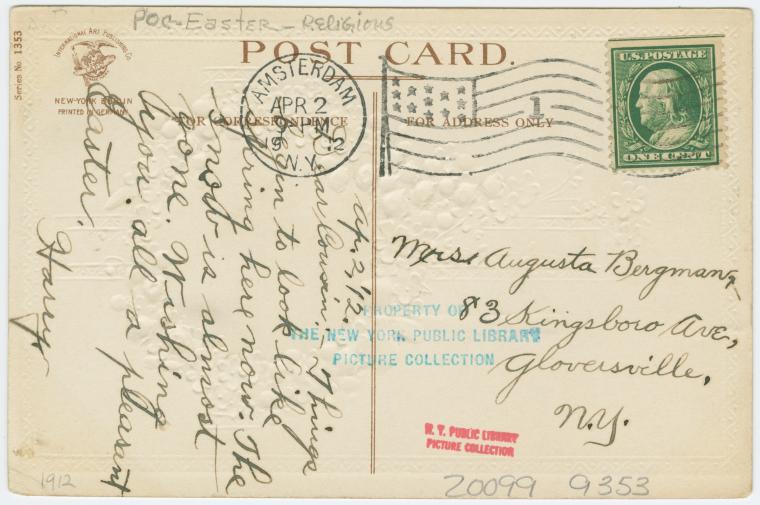 POC-Easter-Religious
POST CARD.
Series No 1353
INTERNATIONAL ART PUBLISHING Co.
NEW-YORK BERLIN
PRINTED IN GERMANY
FOR CORRESPONDENCE
FOR ADDRESS ONLY
AMSTERDAM
APR 2
19 12
N.Y.
1
U.S. POSTAGE
ONE CENT
Apr. 2, '12.
Dear Cousin:, Things
begin to look like
spring here now. The
snow is almost
gone. Wishing
you all a pleasant
Easter.
Harry
Mrs. Augusta Bergmann
83 Kingsboro Ave,
Gloversville,
N.Y.
PROPERTY OF
THE NEW YORK PUBLIC LIBRARY
PICTURE COLLECTION
N. Y. PUBLIC LIBRARY
PICTURE COLLECTION
1912
20099 9353